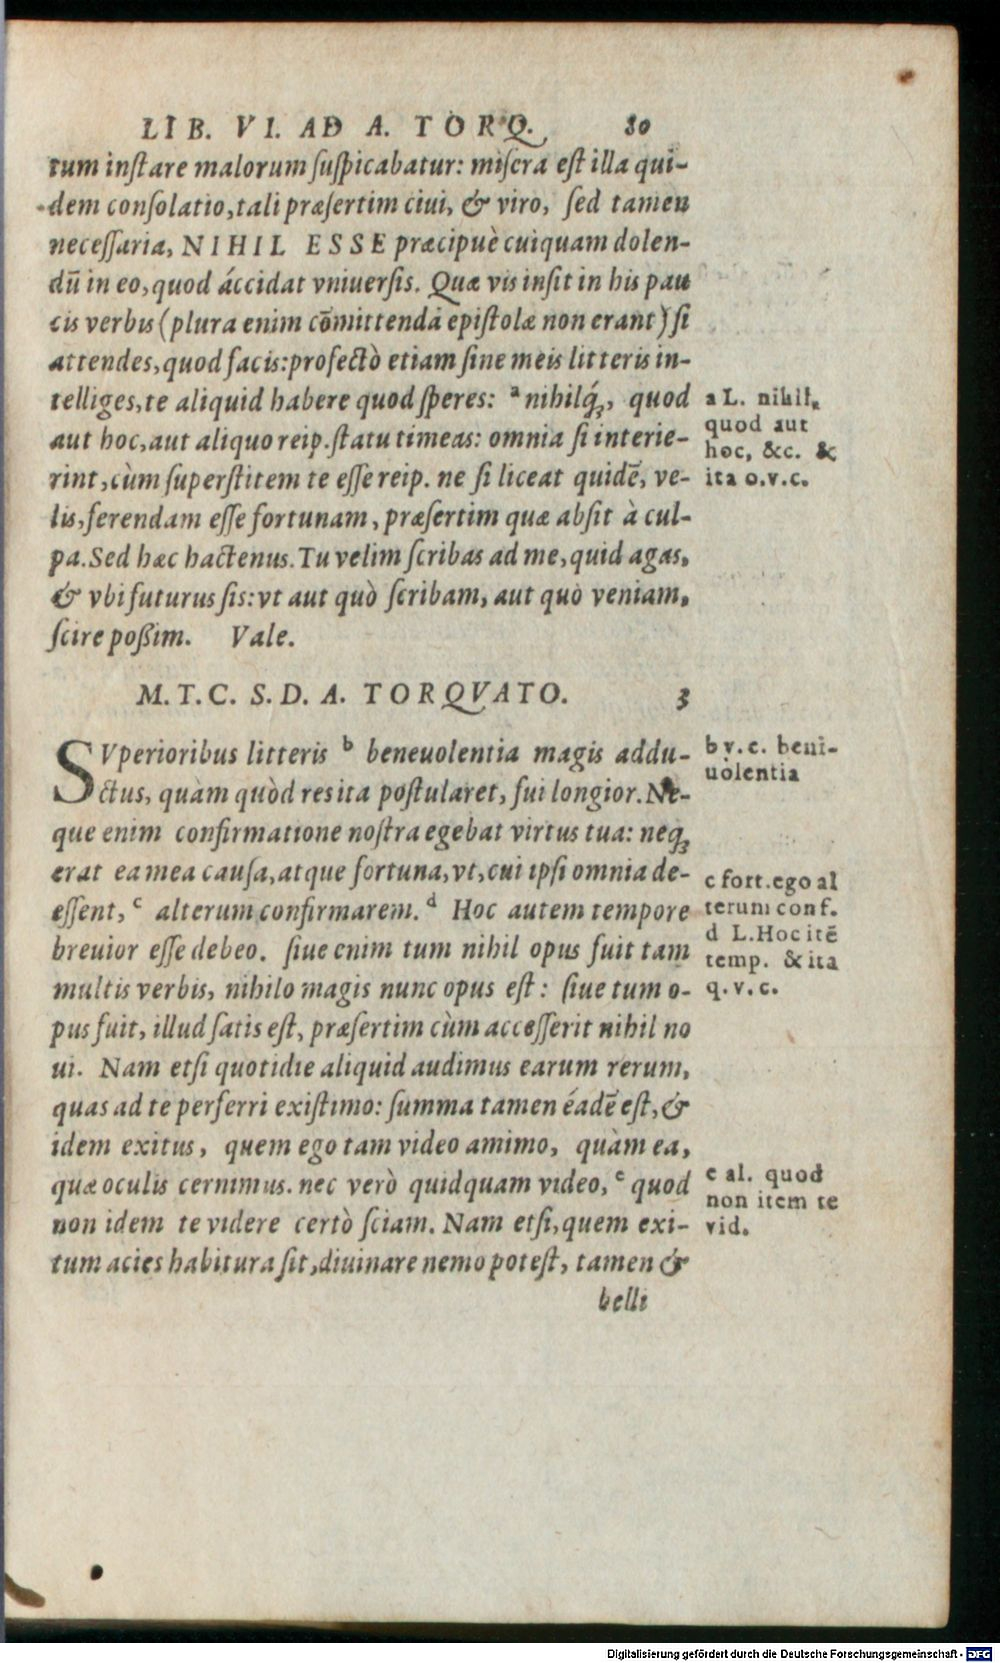 LIB. VI. AD A. TORQ. 80
tum instare malorum suspicabatur: misera est illa qui-
dem consolatio, tali præsertim ciui, & viro, sed tamen
necessaria, NIHIL ESSE præcipuè cuiquam dolen-
dū in eo, quod áccidat vniuersis. Quæ vis insit in his pau
cis verbis (plura enim cōmittenda epistolæ non erant) si
attendes, quod facis: profectò etiam sine meis litteris in-
telliges, te aliquid habere quod speres: a nihilq́;, quod
aut hoc, aut aliquo reip. statu timeas: omnia si interie-
rint, cùm superstitem te esse reip. ne si liceat quidē, ve-
lis, ferendam esse fortunam, præsertim quæ absit à cul-
pa. Sed hæc hactenus. Tu velim scribas ad me, quid agas,
& vbi futurus sis: vt aut quò scribam, aut quò veniam,
scire poßim. Vale.
a L. nihil,
quod aut
hoc, &c. &
ita o.v.c.
M. T. C. S. D. A. TORQVATO. 3
SVperioribus litteris b beneuolentia magis addu-
ctus, quàm quòd res ita postularet, fui longior. Ne-
que enim confirmatione nostra egebat virtus tua: neq;
erat ea mea causa, atque fortuna, vt, cui ipsi omnia de-
essent, c alterum confirmarem. d Hoc autem tempore
breuior esse debeo. siue enim tum nihil opus fuit tam
multis verbis, nihilo magis nunc opus est: siue tum o-
pus fuit, illud satis est, præsertim cùm accesserit nihil no
ui. Nam etsi quotidie aliquid audimus earum rerum,
quas ad te perferri existimo: summa tamen éadē est, &
idem exitus, quem ego tam video amimo, quàm ea,
quæ oculis cernimus. nec verò quidquam video, e quod
non idem te videre certò sciam. Nam etsi, quem exi-
tum acies habitura sit, diuinare nemo potest, tamen &
belli
b v. c. beni-
uolentia
c fort. ego al
terum conf.
d L. Hoc itē
temp. & ita
q. v. c.
e al. quod
non item te
vid.
Digitalisierung gefördert durch die Deutsche Forschungsgemeinschaft - DFG